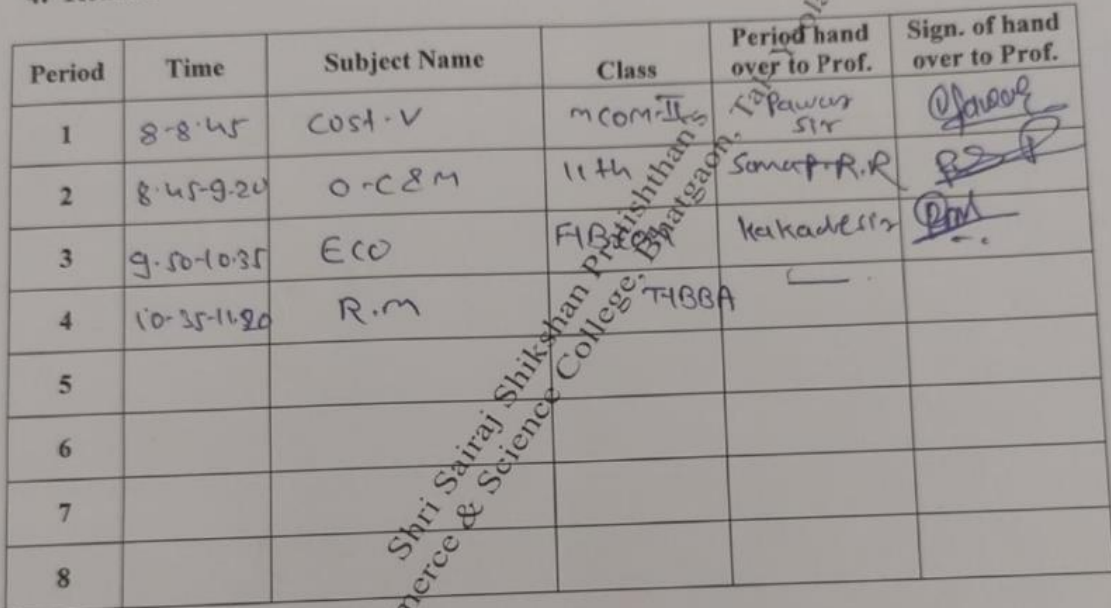 Period Time Subject Name Class Period hand over to Prof. Sign. of hand over to Prof.
1 8-8.45 Cost.V mcom-II Pawar sir
2 8.45-9.20 O-C&M 11th R.R
3 9.50-10.35 Eco kakadesir
4 10-35-11.20 R.m TYBBA —
5
6
7
8
Shri Sairaj Shikshan Pratishthan's
Science College, Bhatgaon,